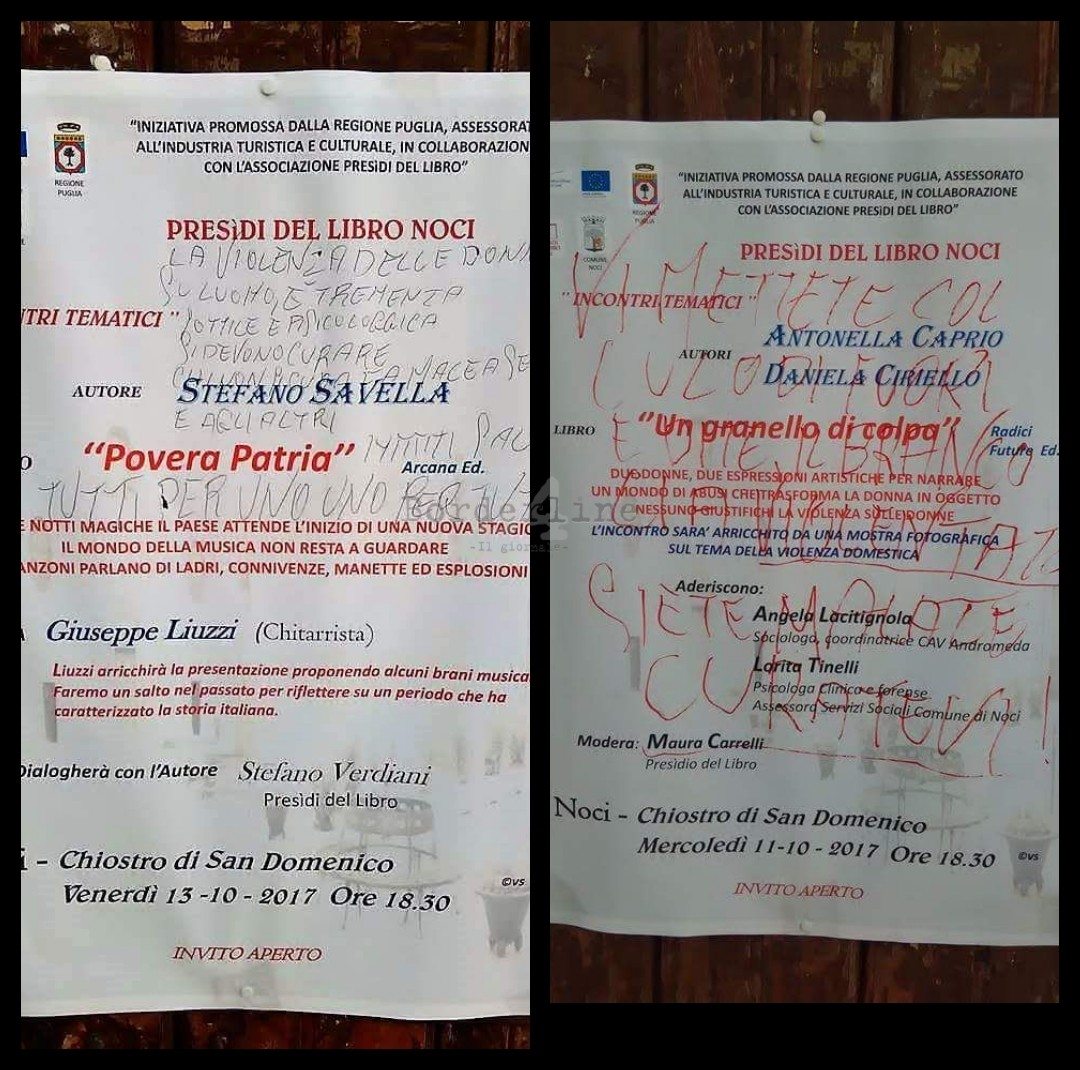 "INIZIATIVA PROMOSSA DALLA REGIONE PUGLIA, ASSESSORAT
ALL'INDUSTRIA TURISTICA E CULTURALE, IN COLLABORAZION
CON L'ASSOCIAZIONE PRESìDI DEL LIBRO"
REGIONE
PUGLIA
PRESìDI DEL LIBRO NOCI
LA VIOLENZA DELLE DONN
SU LUOMO, E TREMENZA
SOTTILE E PSICOLOGGICA
SI DEVONO CURARE
NTRI TEMATICI "
E AGLI ALTRI
AUTORE STEFANO SAVELLA
"Povera Patria" Arcana Ed.
TUTTI PER UNO UNO PER
E NOTTI MAGICHE IL PAESE ATTENDE L'INIZIO DI UNA NUOVA STAGIO
IL MONDO DELLA MUSICA NON RESTA A GUARDARE
ANZONI PARLANO DI LADRI, CONNIVENZE, MANETTE ED ESPLOSIONI
Giuseppe Liuzzi (Chitarrista)
Liuzzi arricchirà la presentazione proponendo alcuni brani musica
Faremo un salto nel passato per riflettere su un periodo che ha
caratterizzato la storia italiana.
Dialogherà con l'Autore Stefano Verdiani
Presìdi del Libro
i - Chiostro di San Domenico
Venerdì 13 -10 - 2017 Ore 18.30
©vs
INVITO APERTO
"INIZIATIVA PROMOSSA DALLA REGIONE PUGLIA, ASSESSORATO
ALL'INDUSTRIA TURISTICA E CULTURALE, IN COLLABORAZIONE
CON L'ASSOCIAZIONE PRESìDI DEL LIBRO"
REGIONE
PUGLIA
COMUNE
NOCI
PRESìDI DEL LIBRO NOCI
VI METTETE COL
"INCONTRI TEMATICI "
AUTORI ANTONELLA CAPRIO
DANIELA CIRIELLO
CULO DI FUORI
LIBRO "Un granello di colpa" Radici
Future Ed.
E POI IL BRANCO
DUE DONNE, DUE ESPRESSIONI ARTISTICHE PER NARRARE
UN MONDO DI ABUSI CHE TRASFORMA LA DONNA IN OGGETTO
NESSUNO GIUSTIFICHI LA VIOLENZA SULLE DONNE
L'INCONTRO SARA' ARRICCHITO DA UNA MOSTRA FOTOGRAFICA
SUL TEMA DELLA VIOLENZA DOMESTICA
Aderiscono:
SIETE MALATE,
Angela Lacitignola
Sociologa, coordinatrice CAV Andromeda
Lorita Tinelli
CURATEVI!
Psicologa Clinica e forense
Assessora Servizi Sociali Comune di Noci
Modera: Maura Carrelli
Presidio del Libro
Noci - Chiostro di San Domenico
Mercoledì 11-10 - 2017 Ore 18.30
©vs
INVITO APERTO
Borderline
-Il giornale-